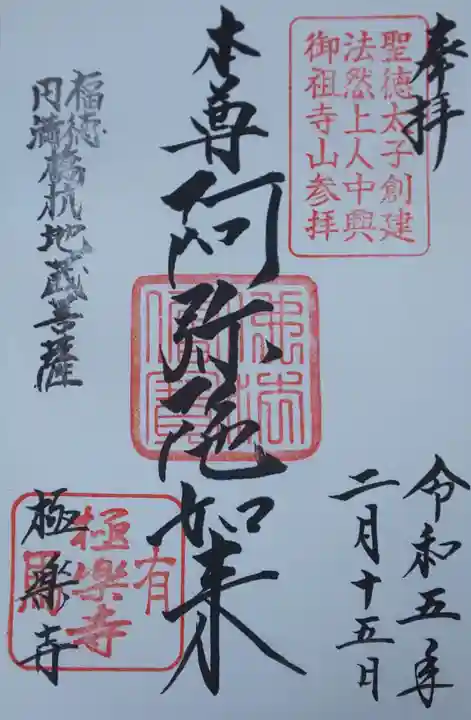 奉拝
聖徳太子創建
法然上人中興
御祖寺山参拝
令和五年
二月十五日
本尊阿弥陀如来
佛法僧寳
福徳
円満
橋杭地蔵菩薩
極楽寺
有馬
極楽寺